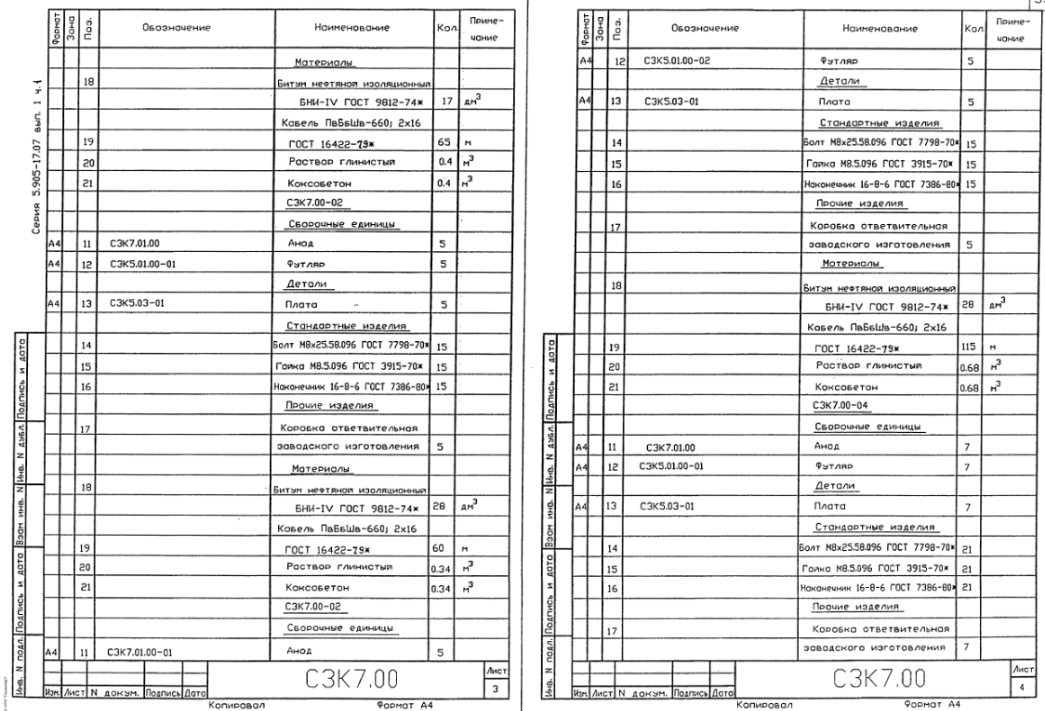 Серия 5.905-17.07 вып. 1 ч.1
Формат Зона Поз. Обозначение Наименование Кол. Приме-чание
Материалы
18 Битум нефтяной изоляционный
БНИ-IV ГОСТ 9812-74* 17 дм3
Кабель ПвБбШв-660; 2х16
19 ГОСТ 16422-79* 65 м
20 Раствор глинистый 0.4 м3
21 Коксобетон 0.4 м3
СЗК7.00-02
Сборочные единицы
А4 11 СЗК7.01.00 Анод 5
А4 12 СЗК5.01.00-01 Футляр 5
Детали
А4 13 СЗК5.03-01 Плата 5
Стандартные изделия
14 Болт М8х25.58.096 ГОСТ 7798-70* 15
15 Гайка М8.5.096 ГОСТ 3915-70* 15
16 Наконечник 16-8-6 ГОСТ 7386-80* 15
Прочие изделия
17 Коробка ответвительная
заводского изготовления 5
Материалы
18 Битум нефтяной изоляционный
БНИ-IV ГОСТ 9812-74* 28 дм3
Кабель ПвБбШв-660; 2х16
19 ГОСТ 16422-79* 60 м
20 Раствор глинистый 0.34 м3
21 Коксобетон 0.34 м3
СЗК7.00-02
Сборочные единицы
А4 11 СЗК7.01.00-01 Анод 5
Инв. N подл. Подпись и дата Взам инв. N Инв. N дубл. Подпись и дата
Изм. Лист N докум. Подпись Дата
СЗК7.00
Лист
3
Копировал Формат А4
Формат Зона Поз. Обозначение Наименование Кол Приме-чание
А4 12 СЗК5.01.00-02 Футляр 5
Детали
А4 13 СЗК5.03-01 Плата 5
Стандартные изделия
14 Болт М8х25.58.096 ГОСТ 7798-70* 15
15 Гайка М8.5.096 ГОСТ 3915-70* 15
16 Наконечник 16-8-6 ГОСТ 7386-80* 15
Прочие изделия
17 Коробка ответвительная
заводского изготовления 5
Материалы
18 Битум нефтяной изоляционный
БНИ-IV ГОСТ 9812-74* 28 дм3
Кабель ПвБбШв-660; 2х16
19 ГОСТ 16422-79* 115 м
20 Раствор глинистый 0.68 м3
21 Коксобетон 0.68 м3
СЗК7.00-04
Сборочные единицы
А4 11 СЗК7.01.00 Анод 7
А4 12 СЗК5.01.00-01 Футляр 7
Детали
А4 13 СЗК5.03-01 Плата 7
Стандартные изделия
14 Болт М8х25.58.096 ГОСТ 7798-70* 21
15 Гайка М8.5.096 ГОСТ 3915-70* 21
16 Наконечник 16-8-6 ГОСТ 7386-80* 21
Прочие изделия
17 Коробка ответвительная
заводского изготовления 7
Инв. N подл. Подпись и дата Взам инв. N Инв. N дубл. Подпись и дата
Изм. Лист N докум. Подпись Дата
СЗК7.00
Лист
4
Копировал Формат А4